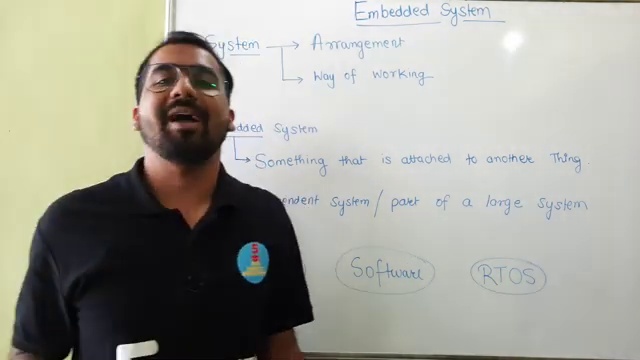 Embedded System
System → Arrangement
Way of working
dded System
Something that is attached to another Thing.
endent System / part of a large System
Software
RTOS